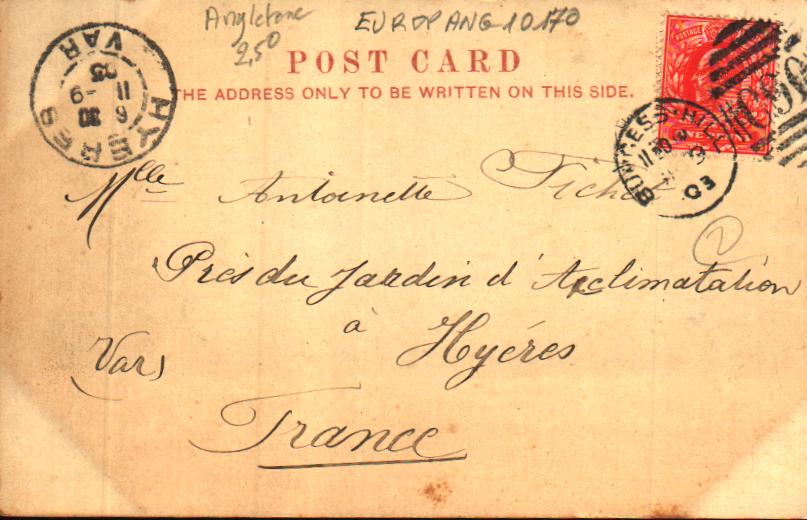 Angleterre
2,50
EUROP ANG 10170
POST CARD
THE ADDRESS ONLY TO BE WRITTEN ON THIS SIDE.
HYERES
VAR
BURGESS-HILL
03
POSTAGE
Mlle Antoinette
Près du Jardin d'Acclimatation
à Hyéres
(Var)
France